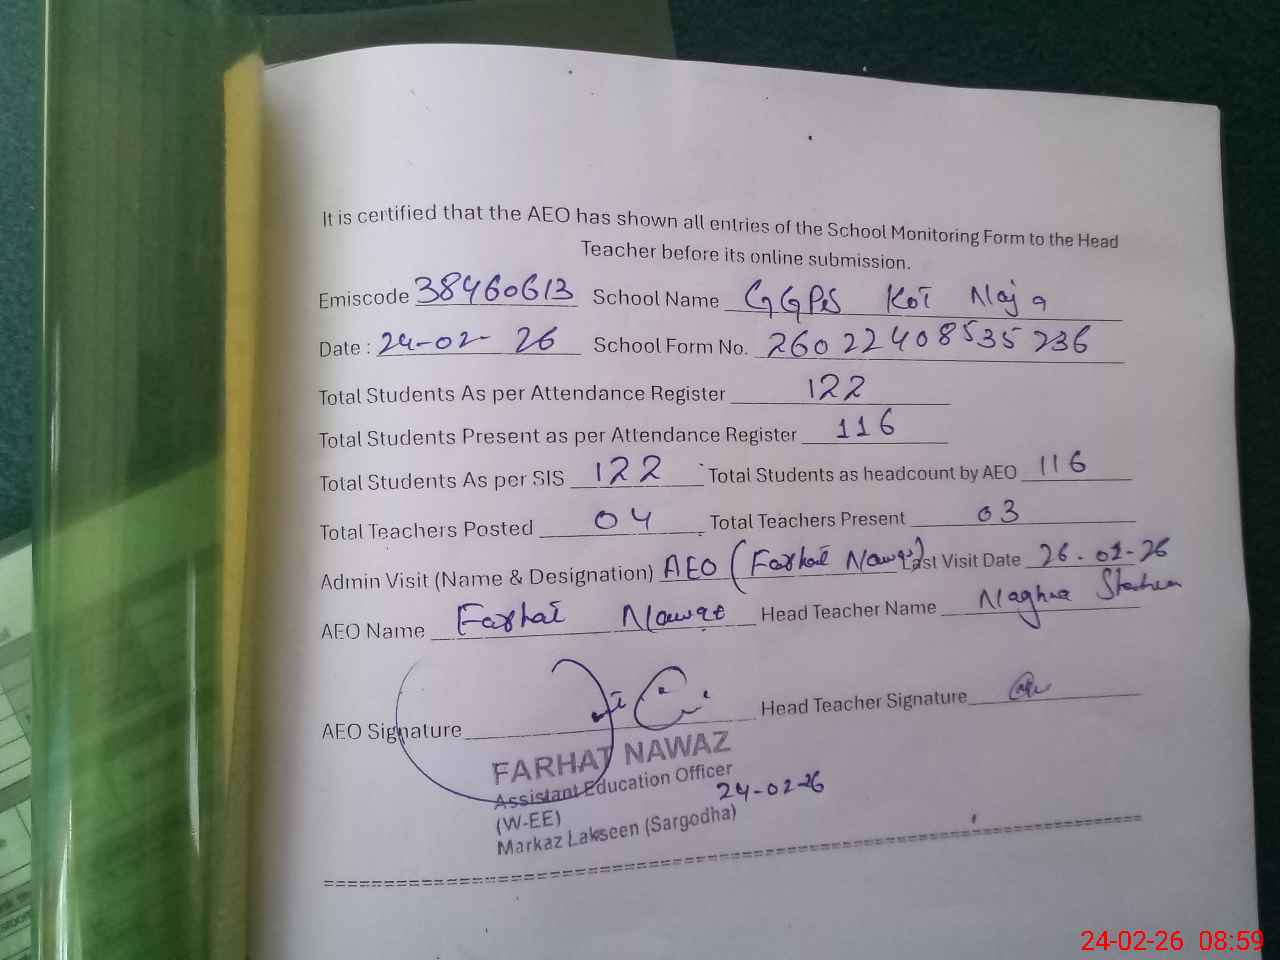 It is certified that the AEO has shown all entries of the School Monitoring Form to the Head
Teacher before its online submission.
Emiscode 38460613 School Name GGPS Kot Naja
Date : 24-02-26 School Form No. 26022408535236
Total Students As per Attendance Register 122
Total Students Present as per Attendance Register 116
Total Students As per SIS 122 Total Students as headcount by AEO 116
Total Teachers Posted 04 Total Teachers Present 03
Admin Visit (Name & Designation) AEO (Farhat Nawaz) Last Visit Date 26-01-26
AEO Name Farhat Nawaz Head Teacher Name Naghma
AEO Signature Head Teacher Signature
FARHAT NAWAZ
Assistant Education Officer
24-02-26
(W-EE)
Markaz Lakseen (Sargodha)
24-02-26 08:59